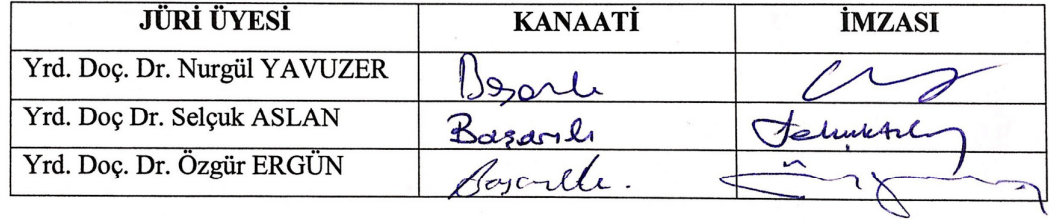 JÜRİ ÜYESİ KANAATİ İMZASI
Yrd. Doç. Dr. Nurgül YAVUZER Başarılı
Yrd. Doç Dr. Selçuk ASLAN Başarılı
Yrd. Doç. Dr. Özgür ERGÜN Başarılı.